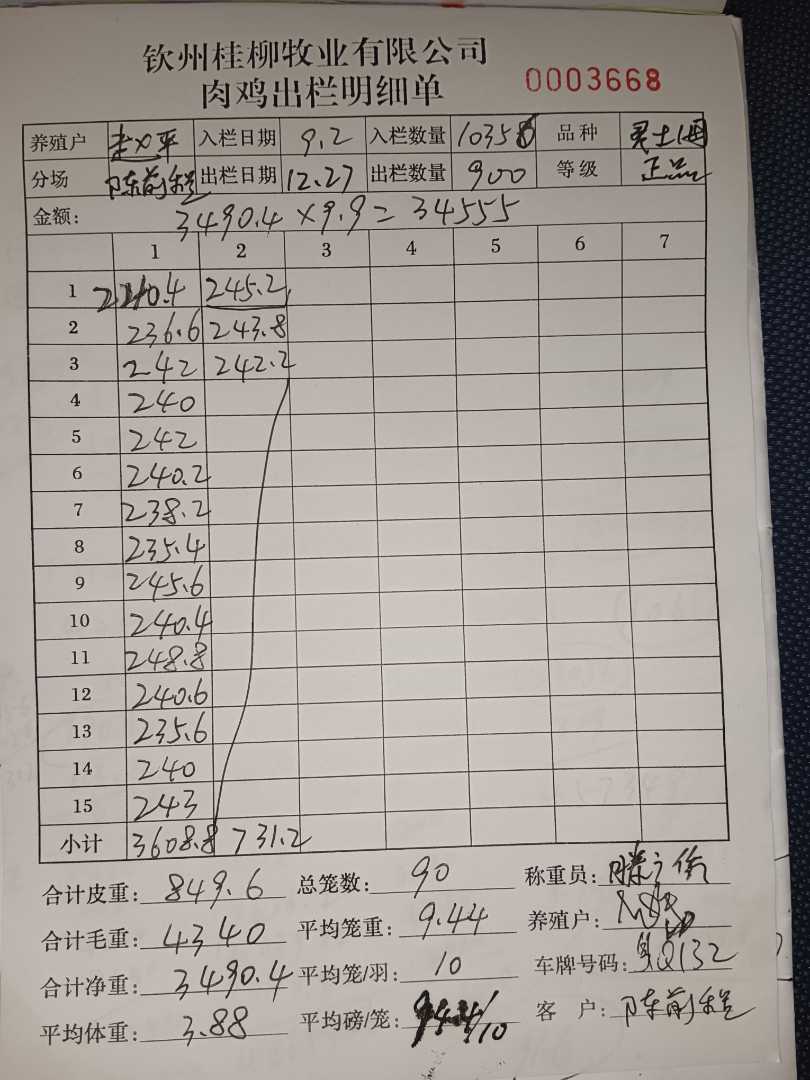 钦州桂柳牧业有限公司
肉鸡出栏明细单 0003668
养殖户 入栏日期 9.2 入栏数量 10358 品种
分场 陈前程 出栏日期 12.27 出栏数量 900 等级 正品
金额: 3490.4×9.9=34555
1 2 3 4 5 6 7
1 240.4 245.2
2 236.6 243.8
3 242 242.2
4 240
5 242
6 240.2
7 238.2
8 235.4
9 245.6
10 240.4
11 248.8
12 240.6
13 235.6
14 240
15 243
小计 3608.8 731.2
合计皮重: 849.6 总笼数: 90 称重员:
合计毛重: 4340 平均笼重: 9.44 养殖户:
合计净重: 3490.4 平均笼/羽: 10 车牌号码:
平均体重: 3.88 平均磅/笼: 客 户: 陈前程